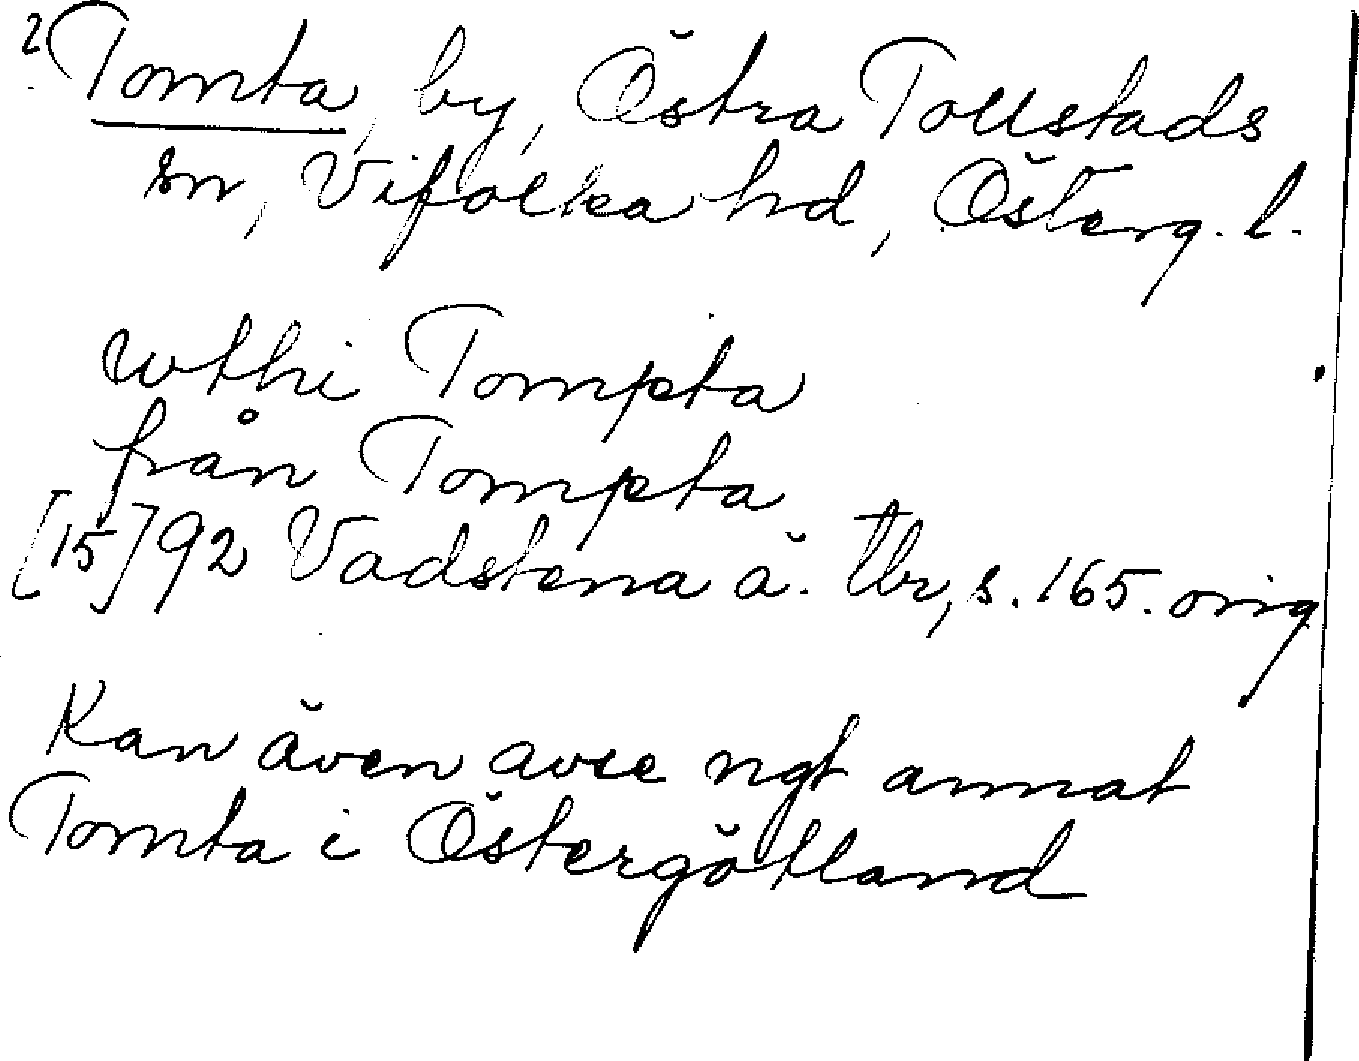 2 Tomta, by, Östra Tollstads
sn, Vifolka hd, Österg. l.
wthi Tompta
från Tompta
[15]92 Vadstena ä. tbr, s. 165. orig
Kan även avse ngt annat
Tomta i Östergötland